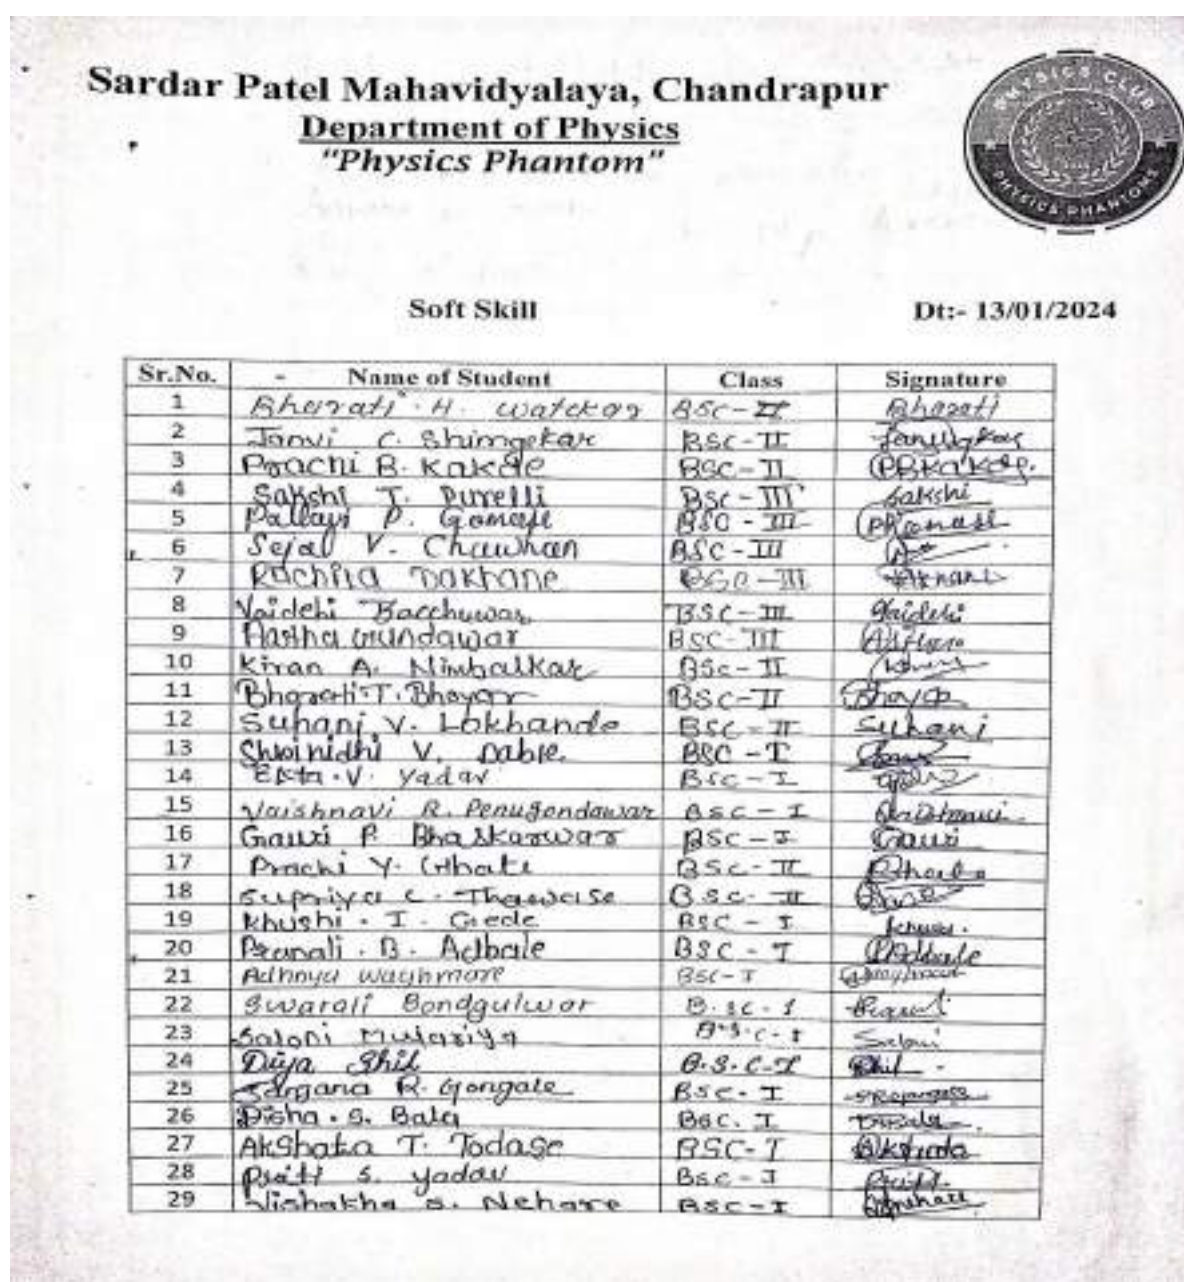 Sardar Patel Mahavidyalaya, Chandrapur
Department of Physics
"Physics Phantom"
PHYSICS CLUB
PHYSICS PHANTOMS
Soft Skill Dt:- 13/01/2024
Sr.No. - Name of Student Class Signature
1 Bharati H. Watekar BSc-II Bharati
2 Janvi C. Shimgekar BSC-II
3 Prachi B. Kakde BSC-II PBKakde.
4 Sakshi T. Purelli BSC-III Sakshi
5 Pallavi P. BSC-III
6 Sejal V. Chawhan BSC-III
7 Rachita Dakhane BSC-III
8 Vaidehi Bacchuwar BSC-III Vaidehi
9 Aastha Gundawar BSC-III
10 Kiran A. Nimbalkar BSc-II
11 Bharati T. Bhoyar BSC-II Bhoyar
12 Suhani V. Lokhande BSC-II Suhani
13 V. Dable. BSC-I
14 Ekta. V. Yadav BSC-I
15 Vaishnavi R. Penugondawar BSC-I
16 Gauri P. Bhaskarwar BSC-I Gauri
17 Prachi Y. Ghate BSC-II
18 Supriya C. BSC-II
19 Khushi. I. Gede BSC-I
20 Pranali. B. Adbale BSC-I PAdbale
21 Adhnya Waghmare BSC-I
22 Swarali Bondgulwar B.sc-I
23 Saloni B.S.C-I Saloni
24 Diya Shil B.S.C-I Shil
25 R. Gongale BSC-I
26 Disha. S. Bala BSC. I
27 Akshata T. Todase BSC-I Akshata
28 S. Yadav BSC-I
29 Vishakha S. Nehare BSC-I